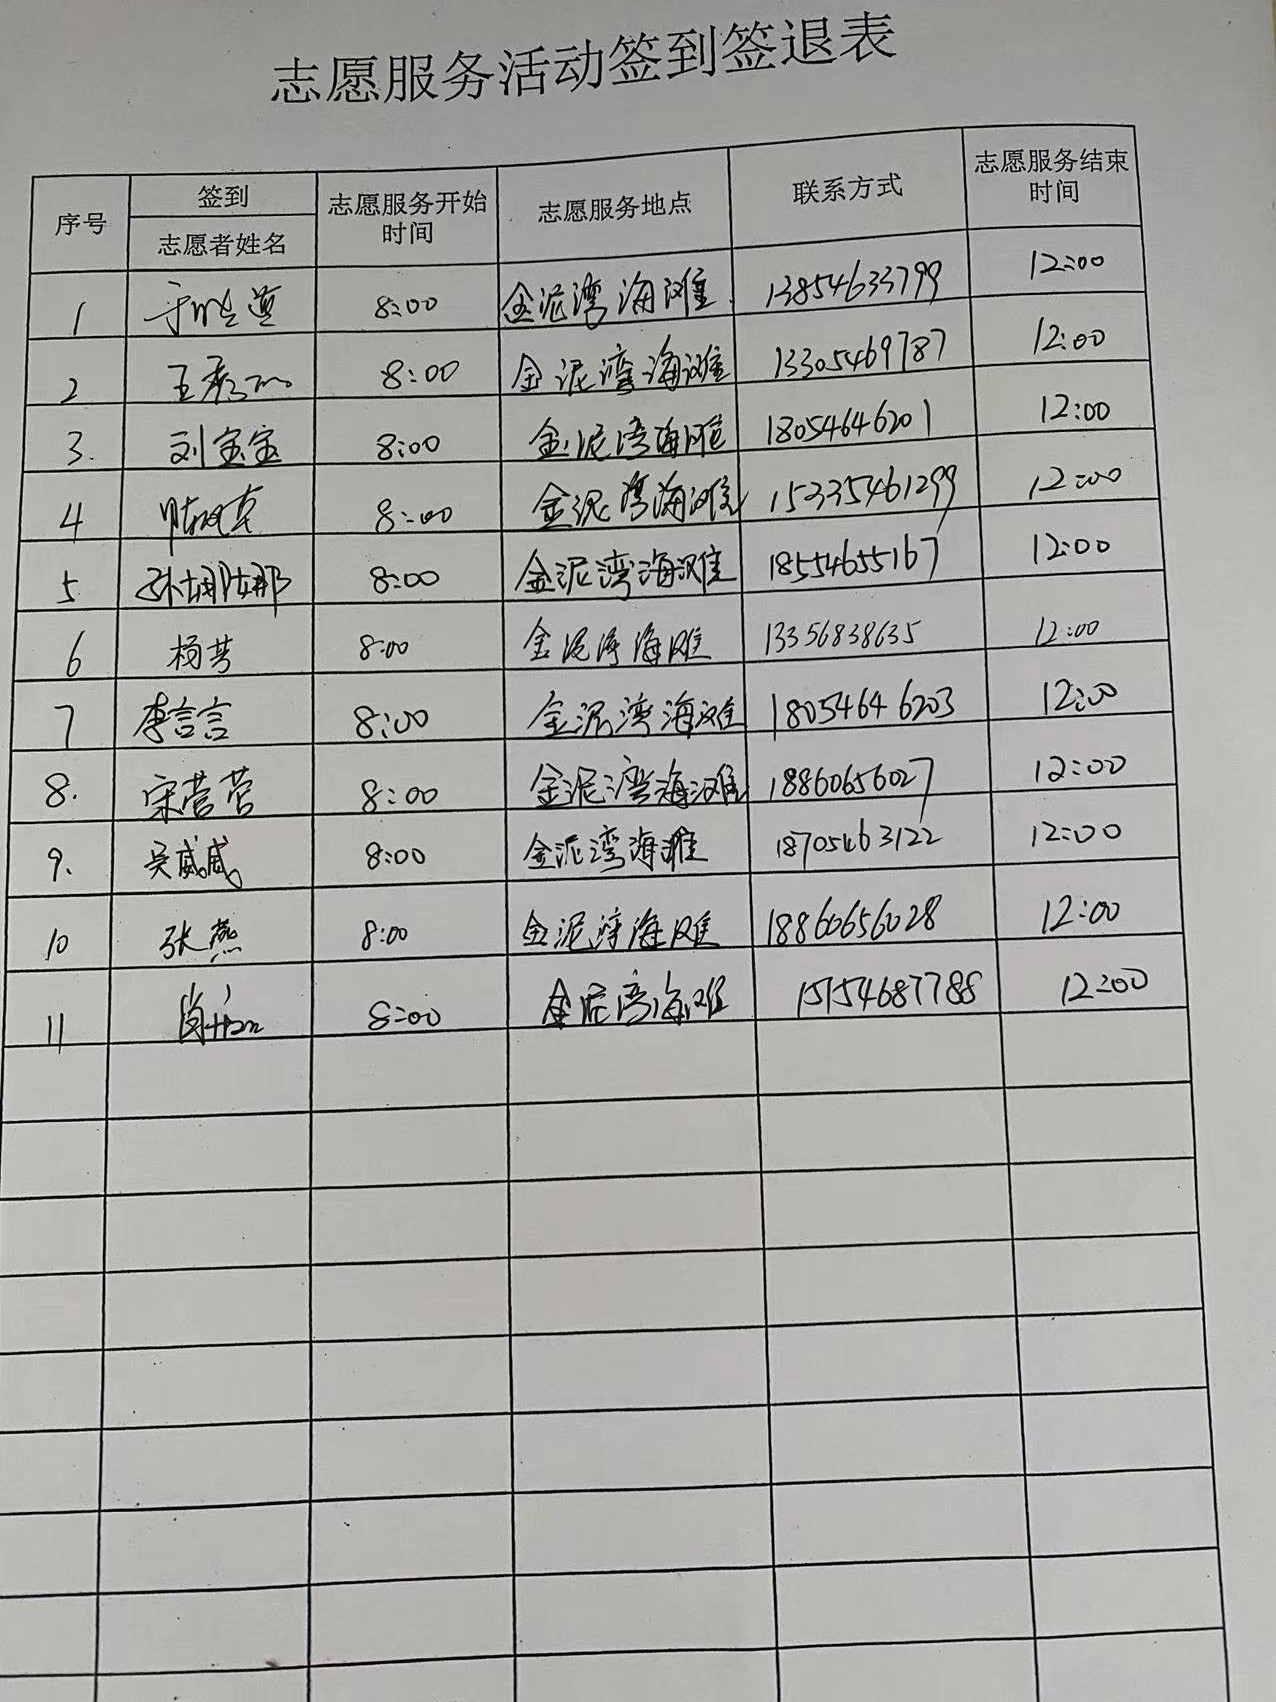 志愿服务活动签到签退表
序号 签到 志愿者姓名 志愿服务开始时间 志愿服务地点 联系方式 志愿服务结束时间
1 8:00 金泥湾海滩 13854633799 12:00
2 王 8:00 金泥湾海滩 13305469787 12:00
3. 刘宝宝 8:00 金泥湾海滩 18054646201 12:00
4 8:00 金泥湾海滩 15335461299 12:00
5 孙娜娜 8:00 金泥湾海滩 18554655167 12:00
6 杨芳 8:00 金泥湾海滩 13356838635 12:00
7 李言言 8:00 金泥湾海滩 18054646203 12:00
8. 宋营营 8:00 金泥湾海滩 18860656027 12:00
9. 吴威威 8:00 金泥湾海滩 18705463122 12:00
10 张燕 8:00 金泥湾海滩 18860656028 12:00
11 8:00 金泥湾海滩 15154687788 12:00